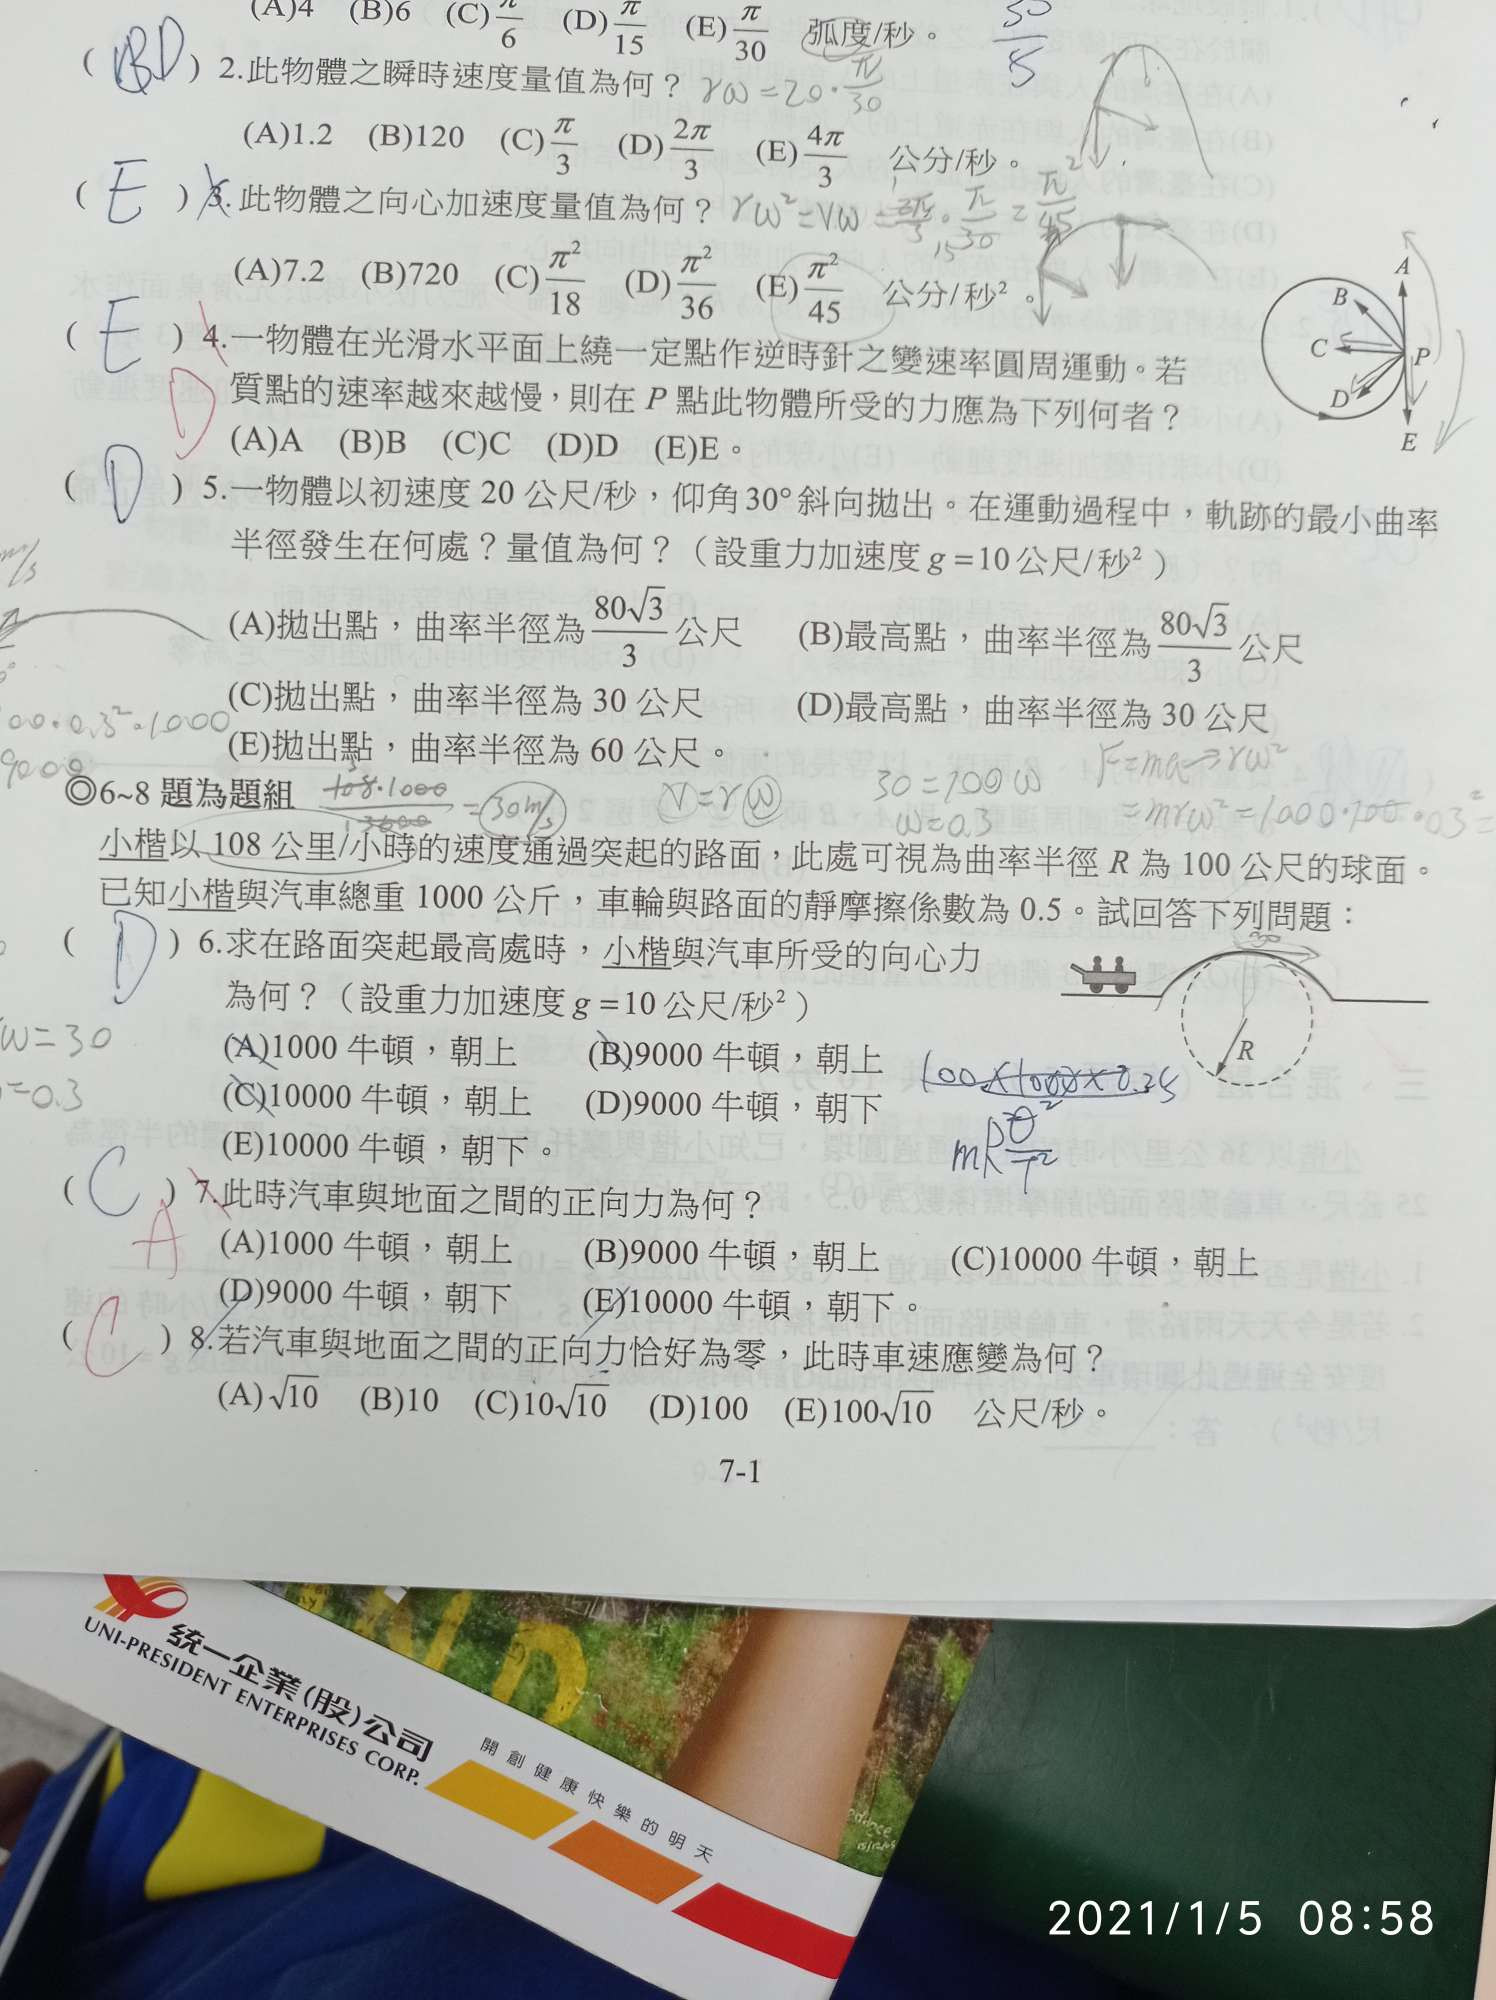 (A)4 (B)6 (C)π/6 (D)π/15 (E)π/30 弧度/秒。
30/5
( BD ) 2.此物體之瞬時速度量值為何？ rω=20·π/30
(A)1.2 (B)120 (C)π/3 (D)2π/3 (E)4π/3 公分/秒。
( E ) 3.此物體之向心加速度量值為何？ rω²=Vω=2π/3·π/30=π²/45
(A)7.2 (B)720 (C)π²/18 (D)π²/36 (E)π²/45 公分/秒²。
( E ) 4.一物體在光滑水平面上繞一定點作逆時針之變速率圓周運動。若
D 質點的速率越來越慢，則在 P 點此物體所受的力應為下列何者？
(A)A (B)B (C)C (D)D (E)E。
A
B
C
P
D
E
( D ) 5.一物體以初速度 20 公尺/秒，仰角30°斜向拋出。在運動過程中，軌跡的最小曲率
半徑發生在何處？量值為何？（設重力加速度 g =10 公尺/秒²）
m/s
(A)拋出點，曲率半徑為80√3/3公尺 (B)最高點，曲率半徑為80√3/3公尺
(C)拋出點，曲率半徑為 30 公尺 (D)最高點，曲率半徑為 30 公尺
00·0.3²·1000
(E)拋出點，曲率半徑為 60 公尺。
9000
◎6~8 題為題組 108·1000/3600=30m/s V=rω 30=100ω F=ma→rω²
ω=0.3 =mrω²=1000·100·0.3²=
小楷以 108 公里/小時的速度通過突起的路面，此處可視為曲率半徑 R 為 100 公尺的球面。
已知小楷與汽車總重 1000 公斤，車輪與路面的靜摩擦係數為 0.5。試回答下列問題：
( D ) 6.求在路面突起最高處時，小楷與汽車所受的向心力
為何？（設重力加速度 g =10 公尺/秒²）
R
ω=30
=0.3
(A)1000 牛頓，朝上 (B)9000 牛頓，朝上
(C)10000 牛頓，朝上 (D)9000 牛頓，朝下
(E)10000 牛頓，朝下。
( C ) 7.此時汽車與地面之間的正向力為何？
A (A)1000 牛頓，朝上 (B)9000 牛頓，朝上 (C)10000 牛頓，朝上
(D)9000 牛頓，朝下 (E)10000 牛頓，朝下。
( C ) 8.若汽車與地面之間的正向力恰好為零，此時車速應變為何？
(A)√10 (B)10 (C)10√10 (D)100 (E)100√10 公尺/秒。
7-1
統一企業(股)公司
UNI-PRESIDENT ENTERPRISES CORP.
開創健康快樂的明天
2021/1/5 08:58